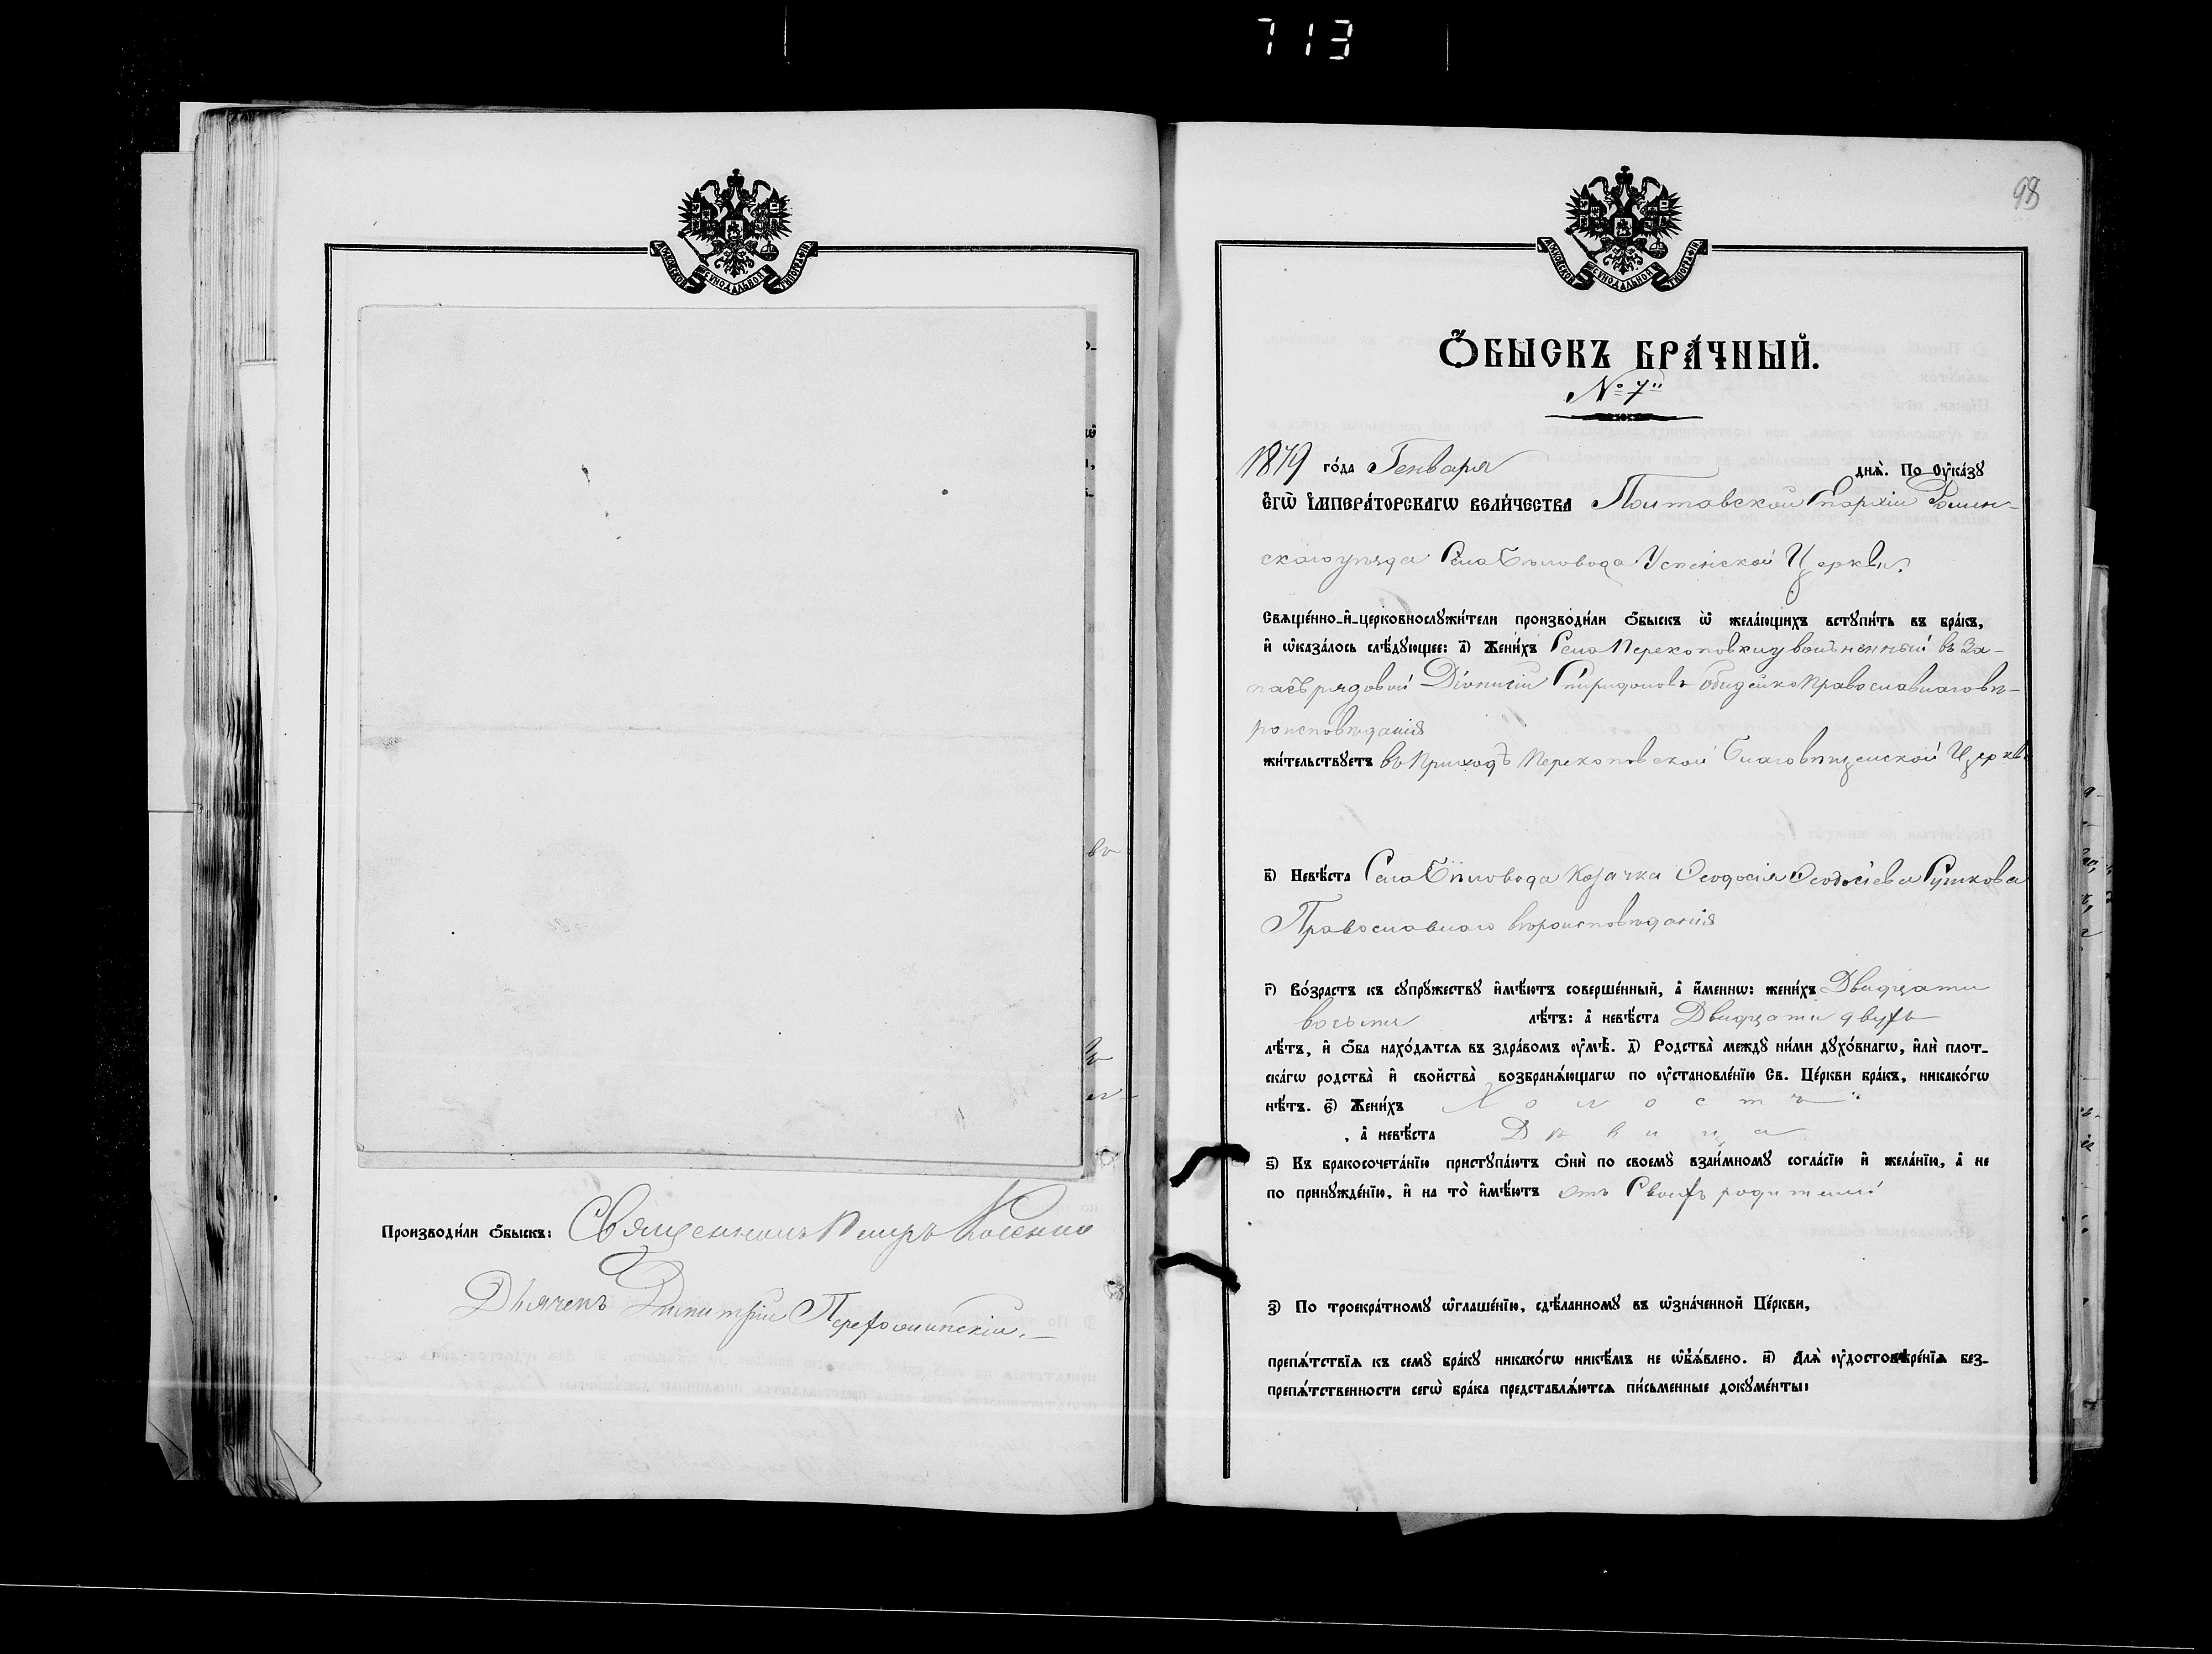 713
МОСКОВСКОЙ СѴНОДАЛЬНОЙ ТИПОГРАФІИ
во
Произвόдили ѻбыскъ: Священникъ Петръ
Дьячекъ Димитрій
98
МОСКОВСКОЙ СѴНОДАЛЬНОЙ ТИПОГРАФІИ
Ѻ҆БЫСКЪ БРА́ЧНЫЙ.
№ 7"
1879 го́да Генваря днѧ̀. По ᲂу҆ка́зꙋ
Є҆ГѠ̀ І҆МПЕРА́ТОРСКАГѠ ВЕЛИ́ЧЕСТВА Полтавской Епархіи Ромен-
скаго уѣзда Села Бѣловода Успенской Церкви.
Свѧще́нно-и҆-церковнослꙋжи́тели производи́ли ѻ҆́быскъ ѡ҆ жела́ющихъ встꙋпи́ть въ бра́къ,
и҆ ѡ҆каза́лось слѣ́дꙋющее: а҃) Жени́хъ Села Перекоповки уволъненный въ За-
пасъ рядовой Діонисій Спиридоновъ Обидейко Православнаго вѣ-
роисповѣданія
жи́тельствꙋетъ въ Приходѣ Перекоповской Благовѣщенской Церкви
в҃) Невѣ́ста Села Бѣловода Козачка Ѳеодосія Ѳеодосіева Сушкова
Православнаго вѣроисповѣданія
г҃) Во́зрастъ къ сꙋпрꙋжествꙋ и҆мѣ́ютъ соверше́нный, а҆ и҆́меннѡ: жени́хъ Двадцати
восьми лѣ́тъ: а҆ невѣ́ста Двадцати двухъ
лѣ́тъ, и҆ ѻ҆́ба нахо́дѧтсѧ въ здра́вомъ ᲂу҆мѣ̀. д҃) Родства̀ междꙋ̀ ни́ми дꙋхо́внагѡ, и҆лѝ плот-
ска́гѡ родства̀ и҆ свойства̀ возбранѧ́ющагѡ по ᲂу҆становле́нїю Св. Це́ркви бра́къ, никако́гѡ
нѣ́тъ. є҃) Жени́хъ Холостъ
, а҆ невѣ́ста Дѣвица
ѕ҃) Къ бракосочета́нїю пристꙋпа́ютъ ѻ҆нѝ по своемꙋ̀ взаи́мномꙋ согла́сїю и҆ жела́нїю, а҆ не
по принꙋжде́нїю, и҆ на то̀ и҆мѣ́ютъ отъ Своихъ родителей
з҃) По троекра́тномꙋ ѡ҆глаше́нїю, сдѣ́ланномꙋ въ ѡ҆зна́ченной Це́ркви,
препѧ́тствїѧ къ семꙋ̀ бра́кꙋ никако́гѡ никѣ́мъ не ѡ҆б̾ѧ́влено. и҃) Длѧ̀ ᲂу҆достовѣре́нїѧ без-
препѧ́тственности сегѡ̀ бра́ка представлѧ́ютсѧ пи́сьменные докꙋме́нты: